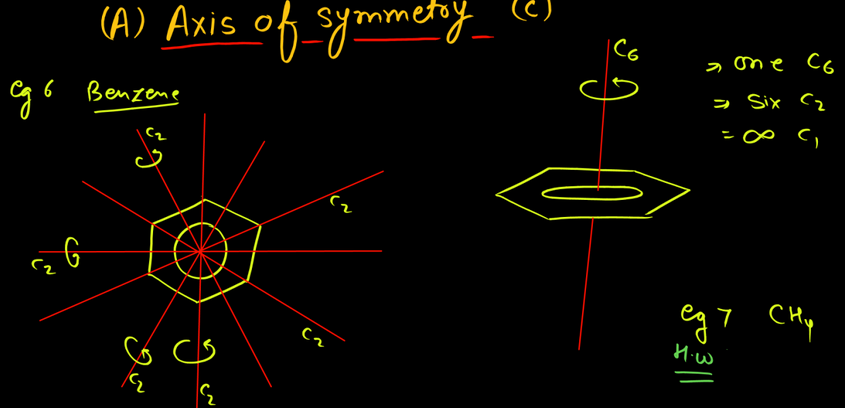 (A) Axis of symmetry (C)
eg 6 Benzene
C2
C2
C2
C2
C2
C2
C6
⇒ one C6
⇒ six C2
= ∞ C1
eg 7 CH4
H.W